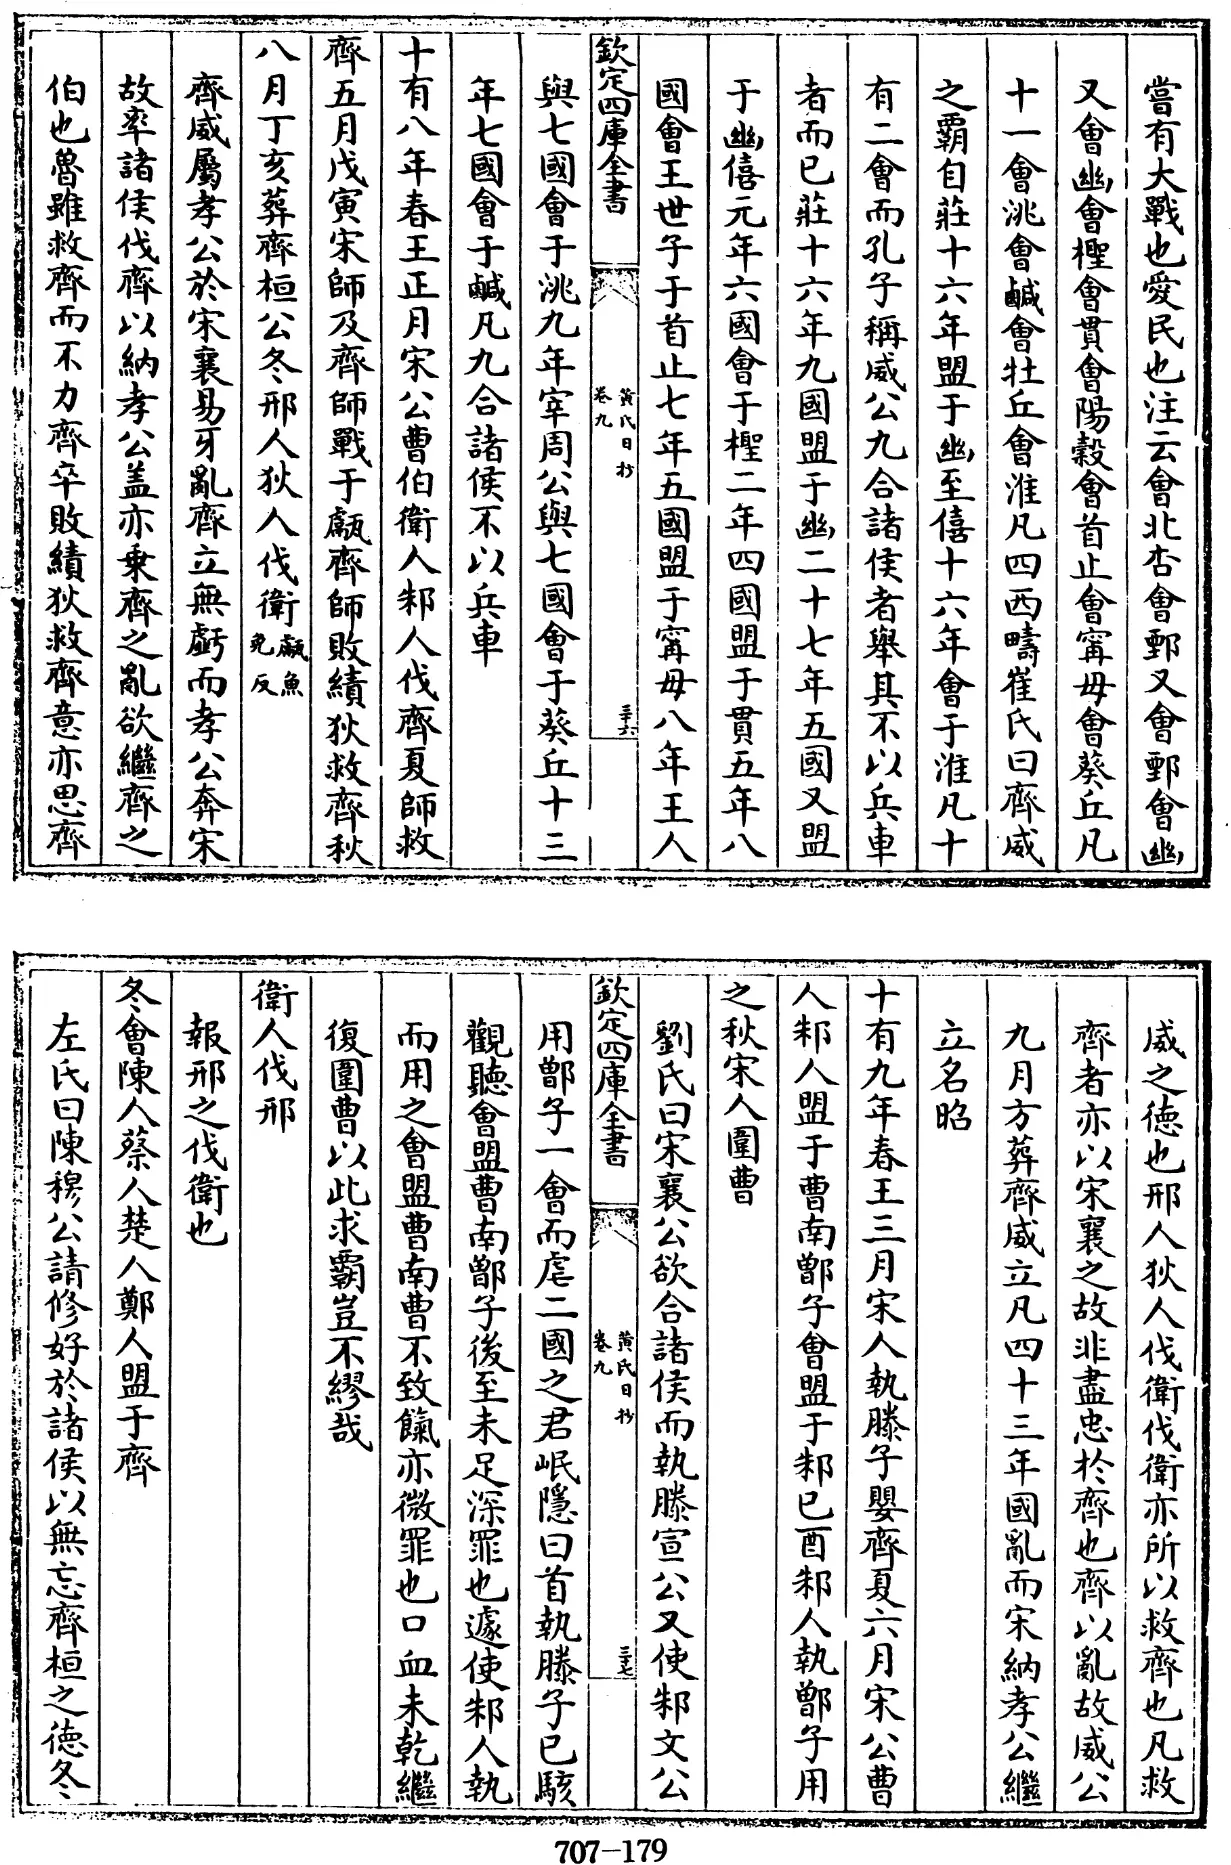 嘗有大戰也愛民也注云會北杏會鄄又會鄄會幽
又會幽會檉會貫會陽穀會首止會甯毋會葵丘凡
十一會洮會鹹會牡丘會淮凡四西疇崔氏曰齊威
之霸自莊十六年盟于幽至僖十六年會于淮凡十
有二會而孔子稱威公九合諸侯者舉其不以兵車
者而已莊十六年九國盟于幽二十七年五國又盟
于幽僖元年六國會于檉二年四國盟于貫五年八
國會王世子于首止七年五國盟于甯毋八年王人
欽定四庫全書
黄氏日抄
卷九
三十六
與七國會于洮九年宰周公與七國會于葵丘十三
年七國會于鹹凡九合諸侯不以兵車
十有八年春王正月宋公曹伯衛人邾人伐齊夏師救
齊五月戊寅宋師及齊師戰于甗齊師敗績狄救齊秋
八月丁亥葬齊桓公冬邢人狄人伐衛甗魚免反
齊威屬孝公於宋襄易牙亂齊立無虧而孝公奔宋
故率諸侯伐齊以納孝公盖亦乘齊之亂欲繼齊之
伯也魯雖救齊而不力齊卒敗績狄救齊意亦思齊
威之德也邢人狄人伐衛伐衛亦所以救齊也凡救
齊者亦以宋襄之故非盡忠於齊也齊以亂故威公
九月方葬齊威立凡四十三年國亂而宋納孝公繼
立名昭
十有九年春王三月宋人執滕子嬰齊夏六月宋公曹
人邾人盟于曹南鄫子會盟于邾已酉邾人執鄫子用
之秋宋人圍曹
劉氏曰宋襄公欲合諸侯而執滕宣公又使邾文公
欽定四庫全書
黄氏日抄
卷九
三十七
用鄫子一會而虐二國之君岷隱曰首執滕子已駭
觀聽會盟曹南鄫子後至未足深罪也遽使邾人執
而用之會盟曹南曹不致餼亦微罪也口血未乾繼
復圍曹以此求霸豈不繆哉
衛人伐邢
報邢之伐衛也
冬會陳人蔡人楚人鄭人盟于齊
左氏曰陳穆公請修好於諸侯以無忘齊桓之德冬
707-179